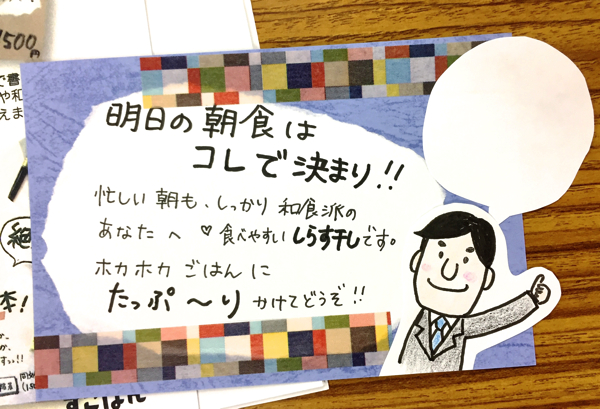 1500
円
で書
や和
えま
明日の朝食は
コレで決まり!!
忙しい朝も、しっかり和食派の
あなたへ♡食べやすいしらす干しです。
ホカホカごはんに
たっぷ〜りかけてどうぞ!!
絶
本!
か、
か、
すぅ!!
すごはん